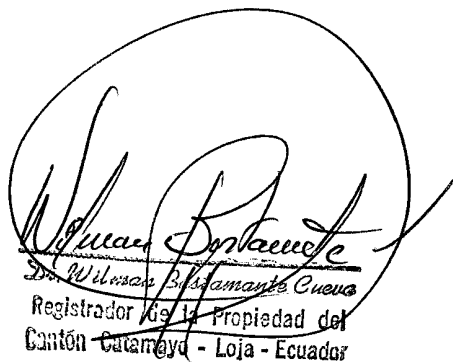 Wilman Bustamante
Dr. Wilman Bustamante Cueva
Registrador de la Propiedad del
Cantón Catamayo - Loja - Ecuador